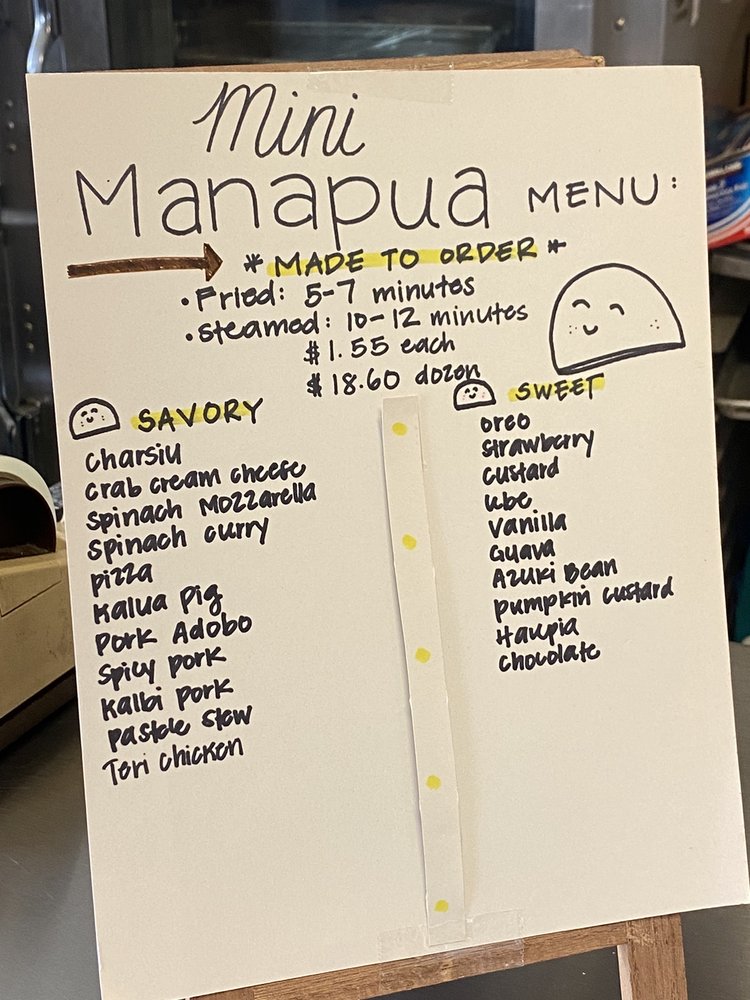 Mini
Manapua MENU:
* MADE TO ORDER *
• Fried: 5-7 minutes
• Steamed: 10-12 minutes
$1.55 each
$18.60 dozen
SAVORY
Charsiu
Crab cream cheese
Spinach Mozzarella
Spinach curry
Pizza
Kalua Pig
Pork Adobo
Spicy pork
Kalbi pork
Pastele Stew
Teri Chicken
SWEET
Oreo
Strawberry
Custard
Ube
Vanilla
Guava
Azuki Bean
Pumpkin custard
Haupia
Chocolate